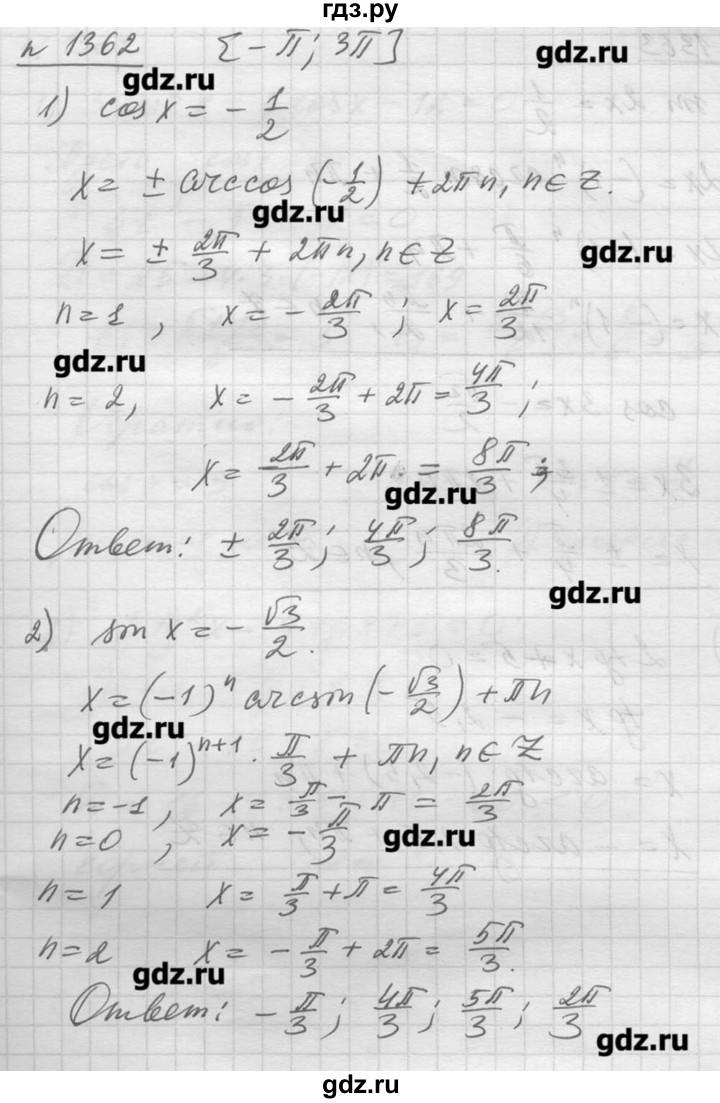 гдз.ру
n 1362 [-π; 3π]
gdz.ru
gdz.ru
1) cos x = - 1/2
x = ± arccos (-1/2) + 2πn, n ∈ Z.
gdz.ru
x = ± 2π/3 + 2πn, n ∈ Z
gdz.ru
n = 1, x = - 2π/3; x = 2π/3
gdz.ru
n = 2, x = - 2π/3 + 2π = 4π/3;
x = 2π/3 + 2π = 8π/3;
gdz.ru
Ответ: ± 2π/3; 4π/3; 8π/3.
gdz.ru
2) sin x = - √3/2.
x = (-1)ⁿ arcsin (-√3/2) + πn
gdz.ru
x = (-1)ⁿ⁺¹ · π/3 + πn, n ∈ Z
n = -1, x = π/3 - π = 2π/3
n = 0, x = - π/3
gdz.ru
n = 1 x = π/3 + π = 4π/3
n = 2 x = - π/3 + 2π = 5π/3.
gdz.ru
Ответ: - π/3; 4π/3; 5π/3; 2π/3
gdz.ru
gdz.ru